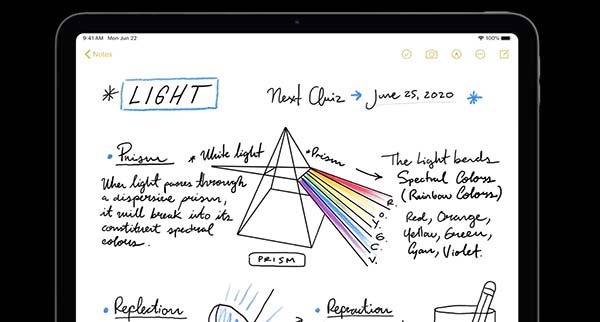 9:41 AM Mon Jun 22
100%
Notes
* LIGHT
Next Quiz → June 25, 2020 *
• Prism
When light passes through
a dispersive prism,
it will break into its
constituent spectral
colors.
* White light
* Prism
R.
O.
Y.
G.
C.
V.
PRISM
→ The Light bends
Spectral Colors
(Rainbow Colors)
Red, Orange,
Yellow, Green,
Cyan, Violet.
• Reflection
• Refraction